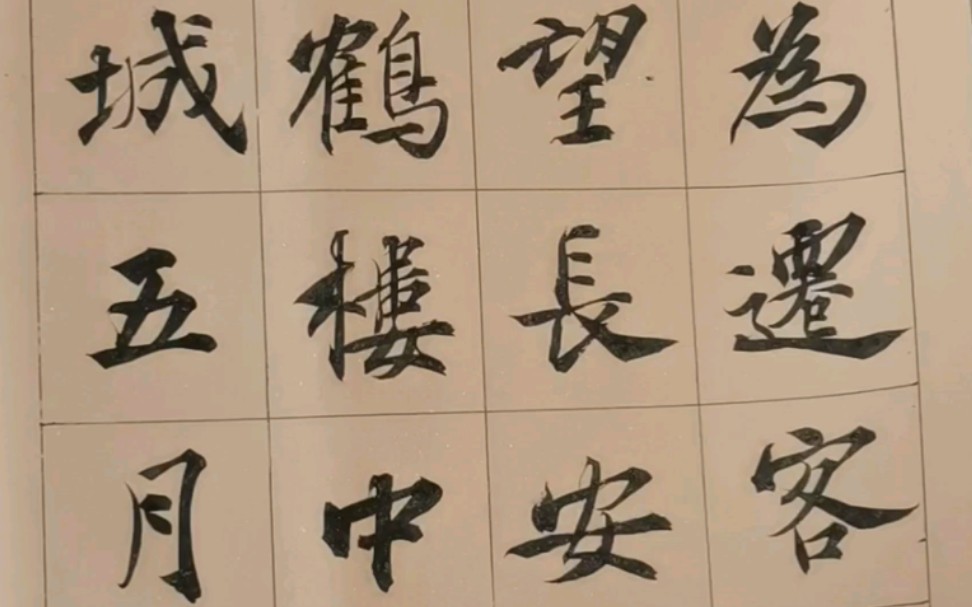 為遷客
望長安
鶴樓中
城五月